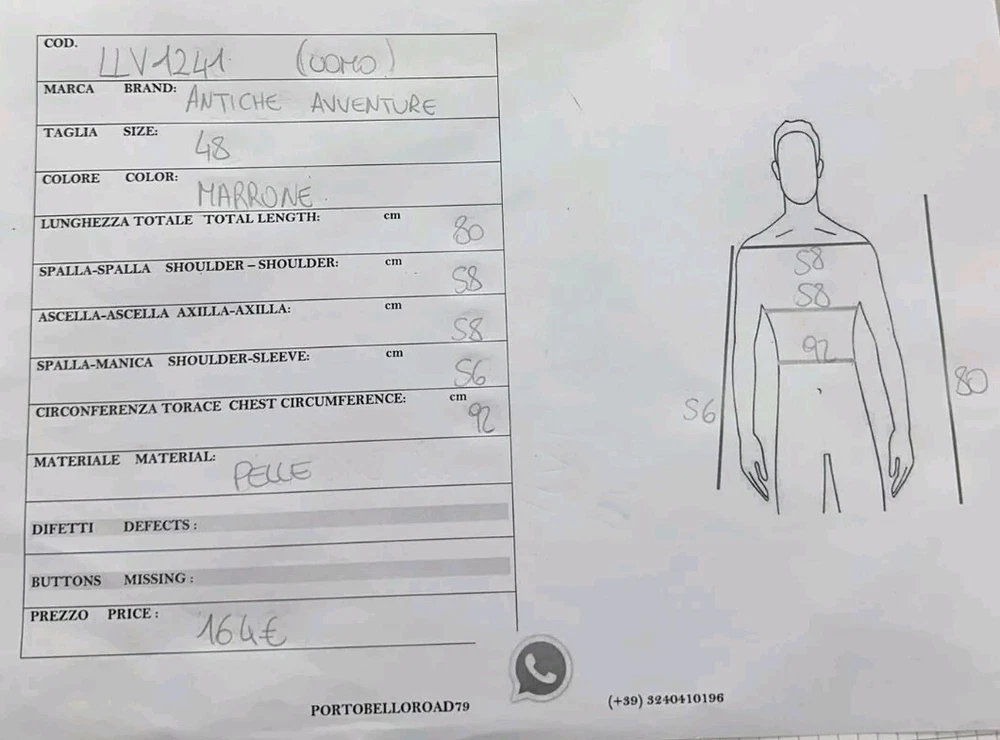 COD. LLV1241 (UOMO)
MARCA BRAND: ANTICHE AVVENTURE
TAGLIA SIZE: 48
COLORE COLOR: MARRONE
LUNGHEZZA TOTALE TOTAL LENGTH: cm 80
SPALLA-SPALLA SHOULDER – SHOULDER: cm 58
ASCELLA-ASCELLA AXILLA-AXILLA: cm 58
SPALLA-MANICA SHOULDER-SLEEVE: cm 56
CIRCONFERENZA TORACE CHEST CIRCUMFERENCE: cm 92
MATERIALE MATERIAL: PELLE
DIFETTI DEFECTS :
BUTTONS MISSING :
PREZZO PRICE : 164€
58
58
92
56
80
PORTOBELLOROAD79 (+39) 3240410196